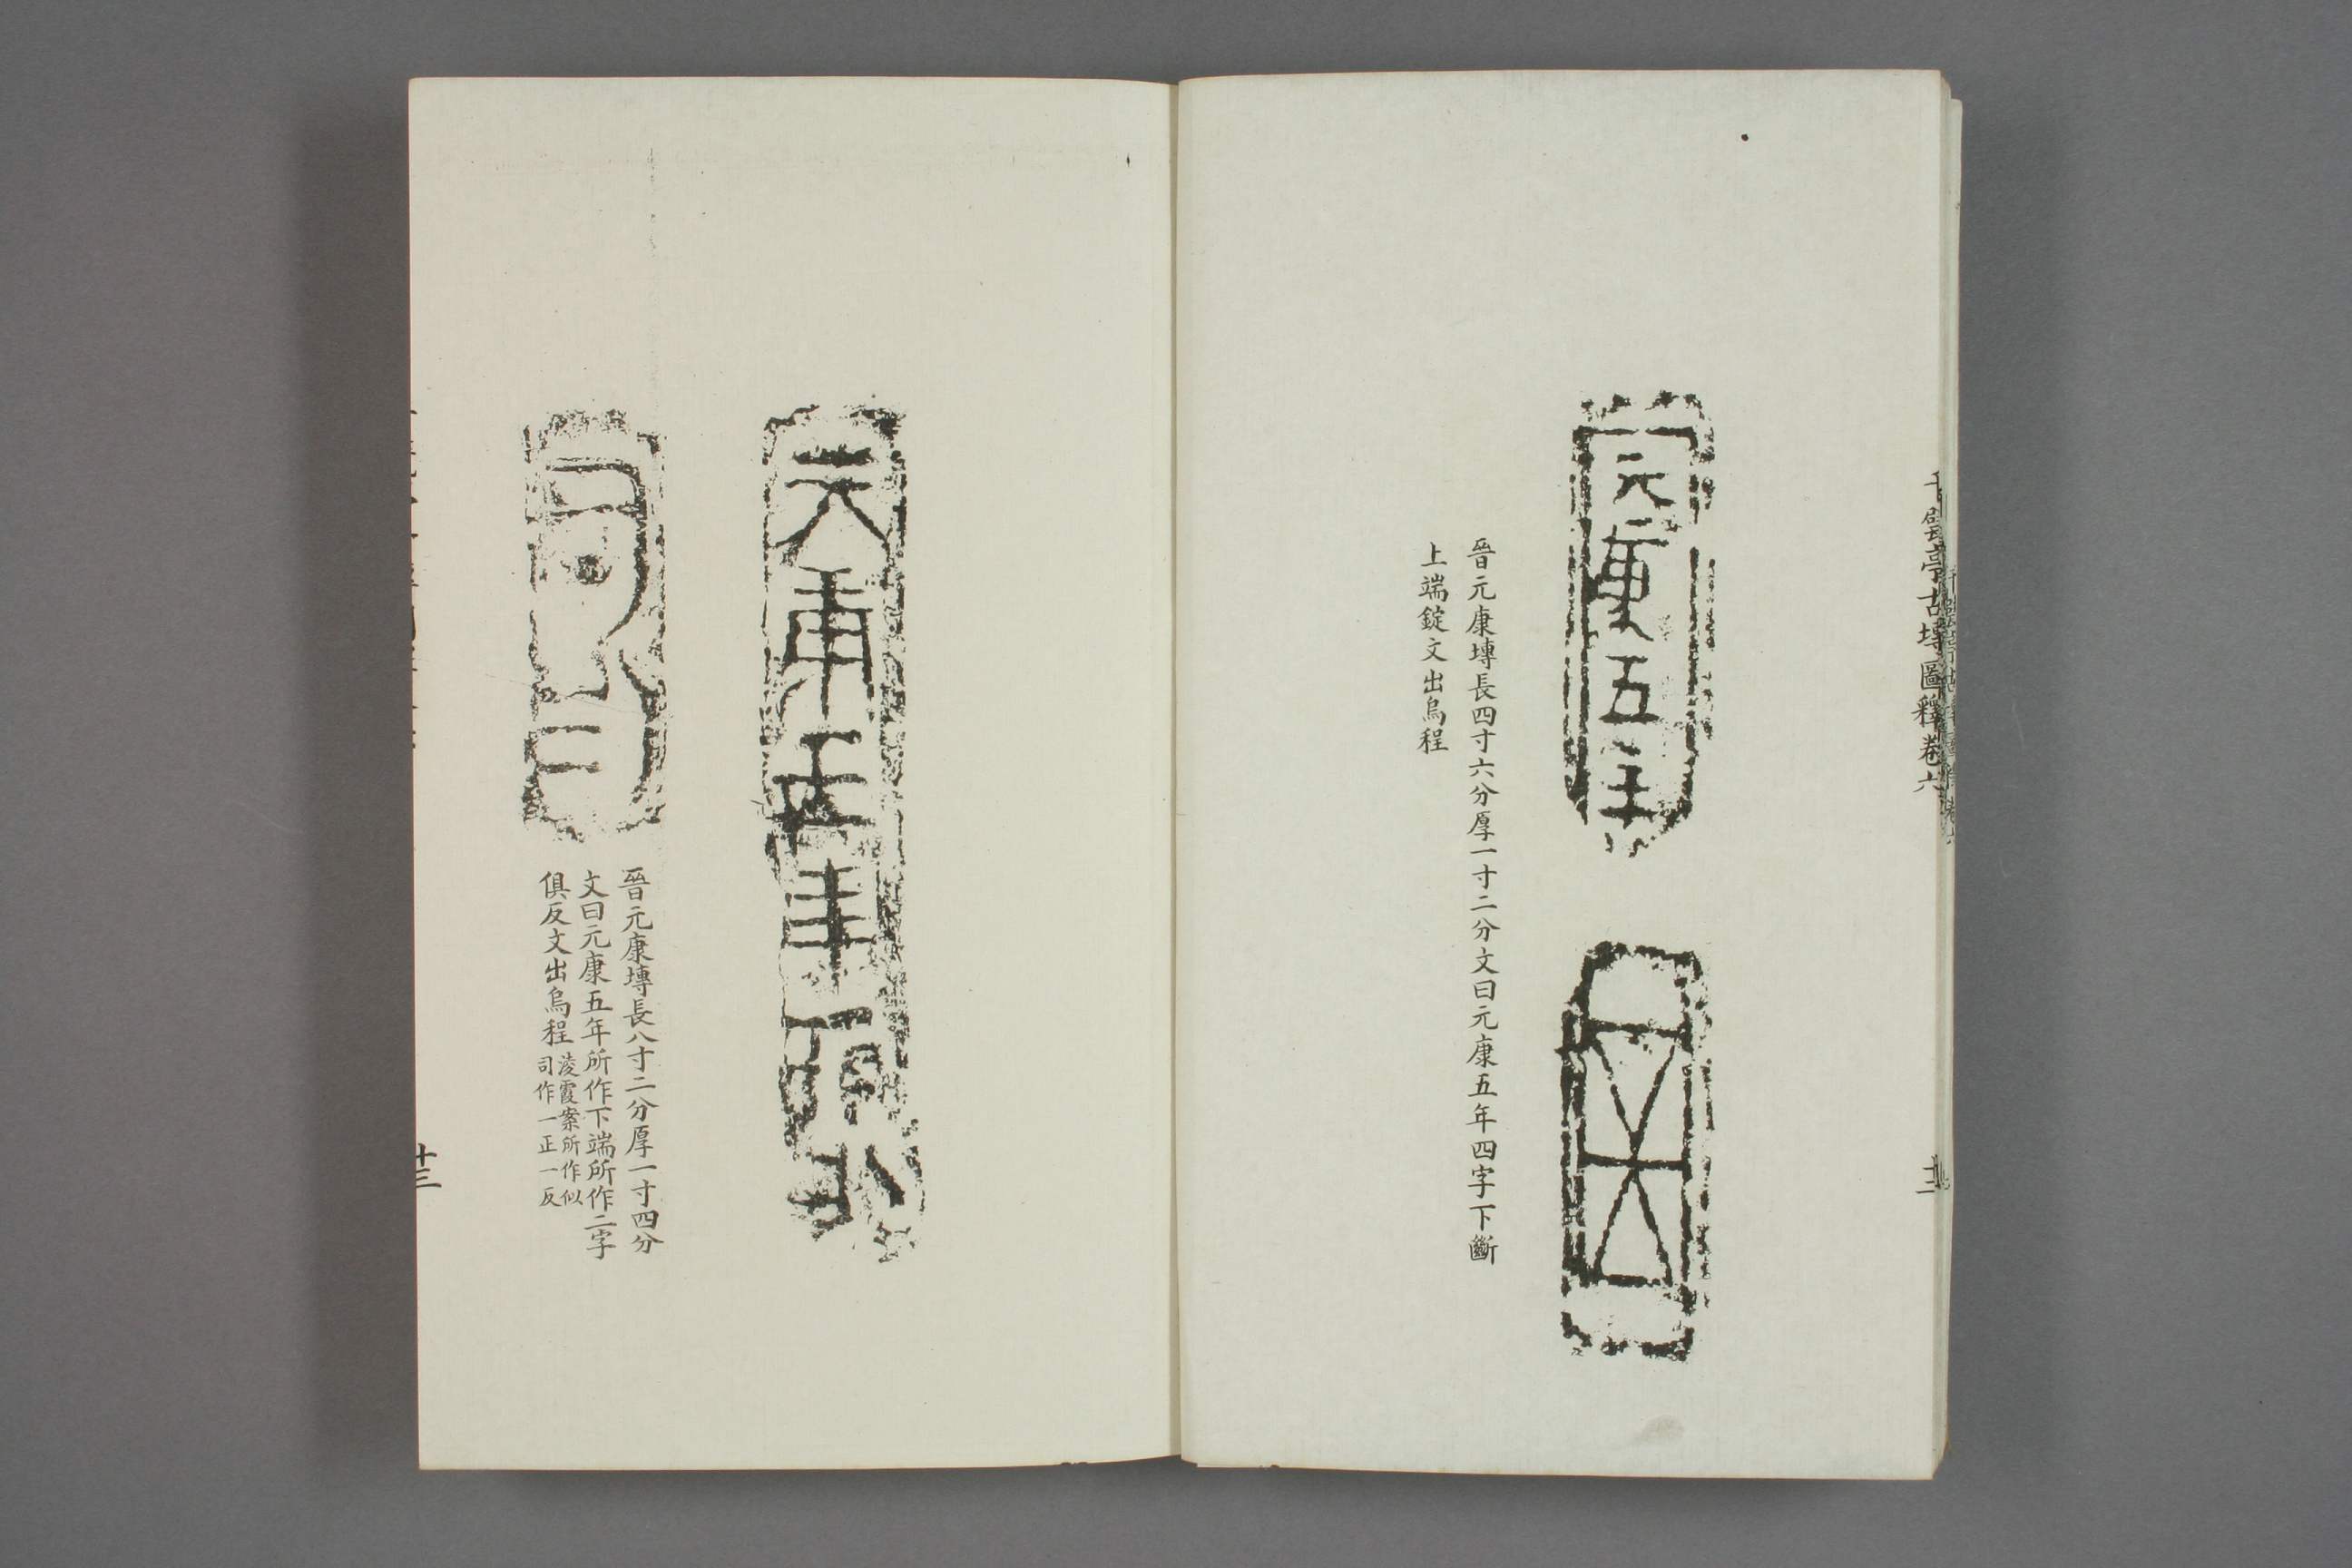 千甓亭古塼圖釋卷六
十二
元康五年
晉元康塼長四寸六分厚一寸二分文曰元康五年四字下斷
上端錠文出烏程
元康五年所作
晉元康塼長八寸二分厚一寸四分
文曰元康五年所作下端所作二字
俱反文出烏程
淩霞案所作似
司作一正一反
十三